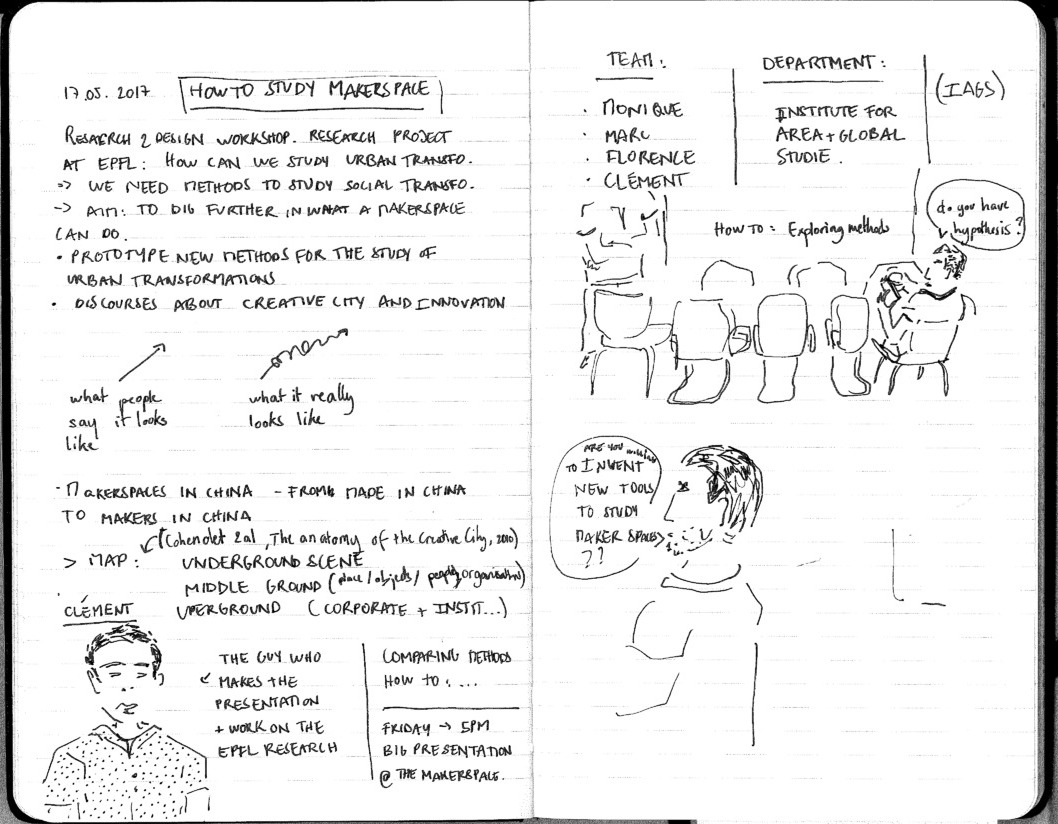 17.05.2017 HOW TO STUDY MAKERSPACE
RESAERCH 2 DESIGN WORKSHOP. RESEARCH PROJECT
AT EPFL: HOW CAN WE STUDY URBAN TRANSFO.
=> WE NEED METHODS TO STUDY SOCIAL TRANSFO.
-> AIM: TO DIG FURTHER IN WHAT A MAKERSPACE
CAN DO.
• PROTOTYPE NEW METHODS FOR THE STUDY OF
URBAN TRANSFORMATIONS
• DISCOURSES ABOUT CREATIVE CITY AND INNOVATION
what people
say it looks
like
what it really
looks like
- MAKERSPACES IN CHINA - FROM MADE IN CHINA
TO MAKERS IN CHINA
(Cohendet & al, The anatomy of the Creative City, 2010)
> MAP: UNDERGROUND SCENE
MIDDLE GROUND (place / objects / people, organisation)
UPERGROUND (CORPORATE + INSTIT...)
CLÉMENT
THE GUY WHO
MAKES THE
PRESENTATION
+ WORK ON THE
EPFL RESEARCH
COMPARING METHODS
HOW TO: ...
FRIDAY -> 5PM
BIG PRESENTATION
@ THE MAKERSPACE.
TEAM:
• MONIQUE
• MARC
• FLORENCE
• CLÉMENT
DEPARTMENT:
INSTITUTE FOR
AREA + GLOBAL
STUDIE.
(IAGS)
HOW TO: Exploring methods
do you have
hypothesis?
ARE YOU
TO INVENT
NEW TOOLS
TO STUDY
MAKER SPACES
??